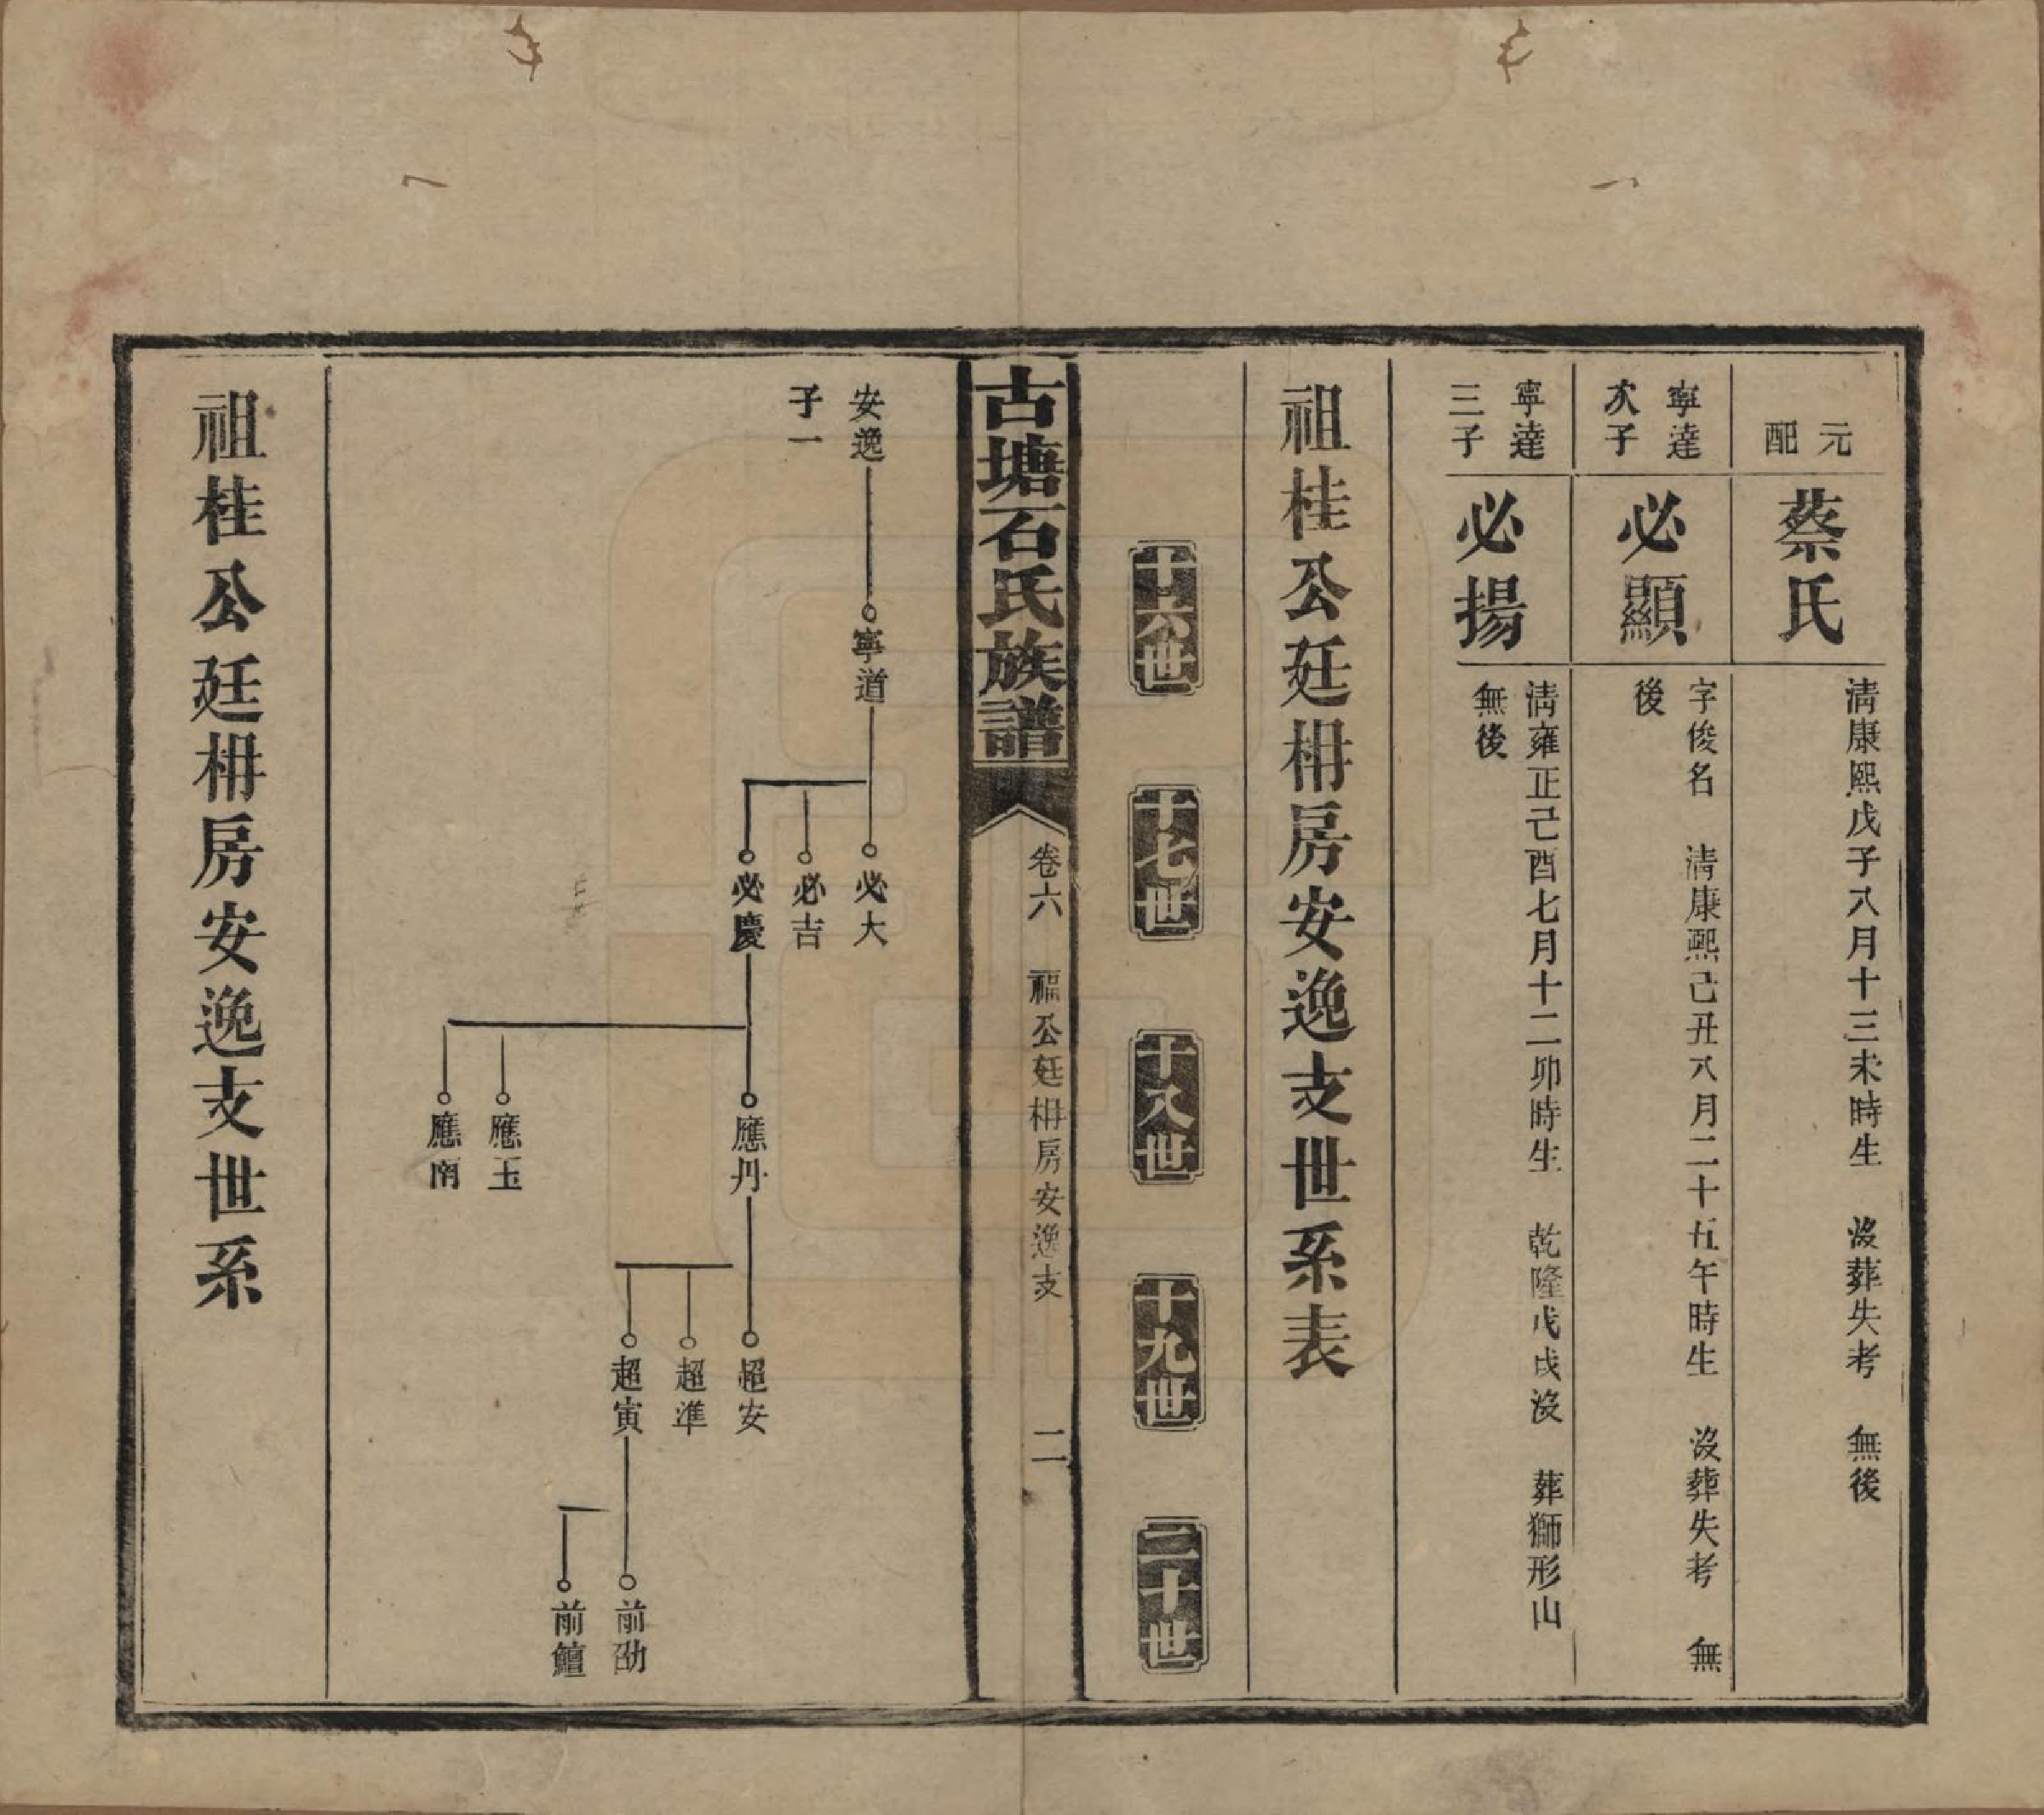 元配
蔡氏
清康熙戊子八月十三未時生　沒葬失考　無後
寧達
次子
必顯
字俊名　清康熙己丑八月二十五午時生　沒葬失考　無
後
寧達
三子
必揚
清雍正己酉七月十二卯時生　乾隆戊戌沒　葬獅形山
無後
祖桂公廷枏房安逸支世系表
十六世
十七世
十八世
十九世
二十世
古塘石氏族譜
卷六　福公廷枏房安逸支　二
安逸
子一
寧道
必大
必吉
必慶
應丹
應玉
應南
超安
超準
超寅
前劭
前鱣
祖桂公廷枏房安逸支世系